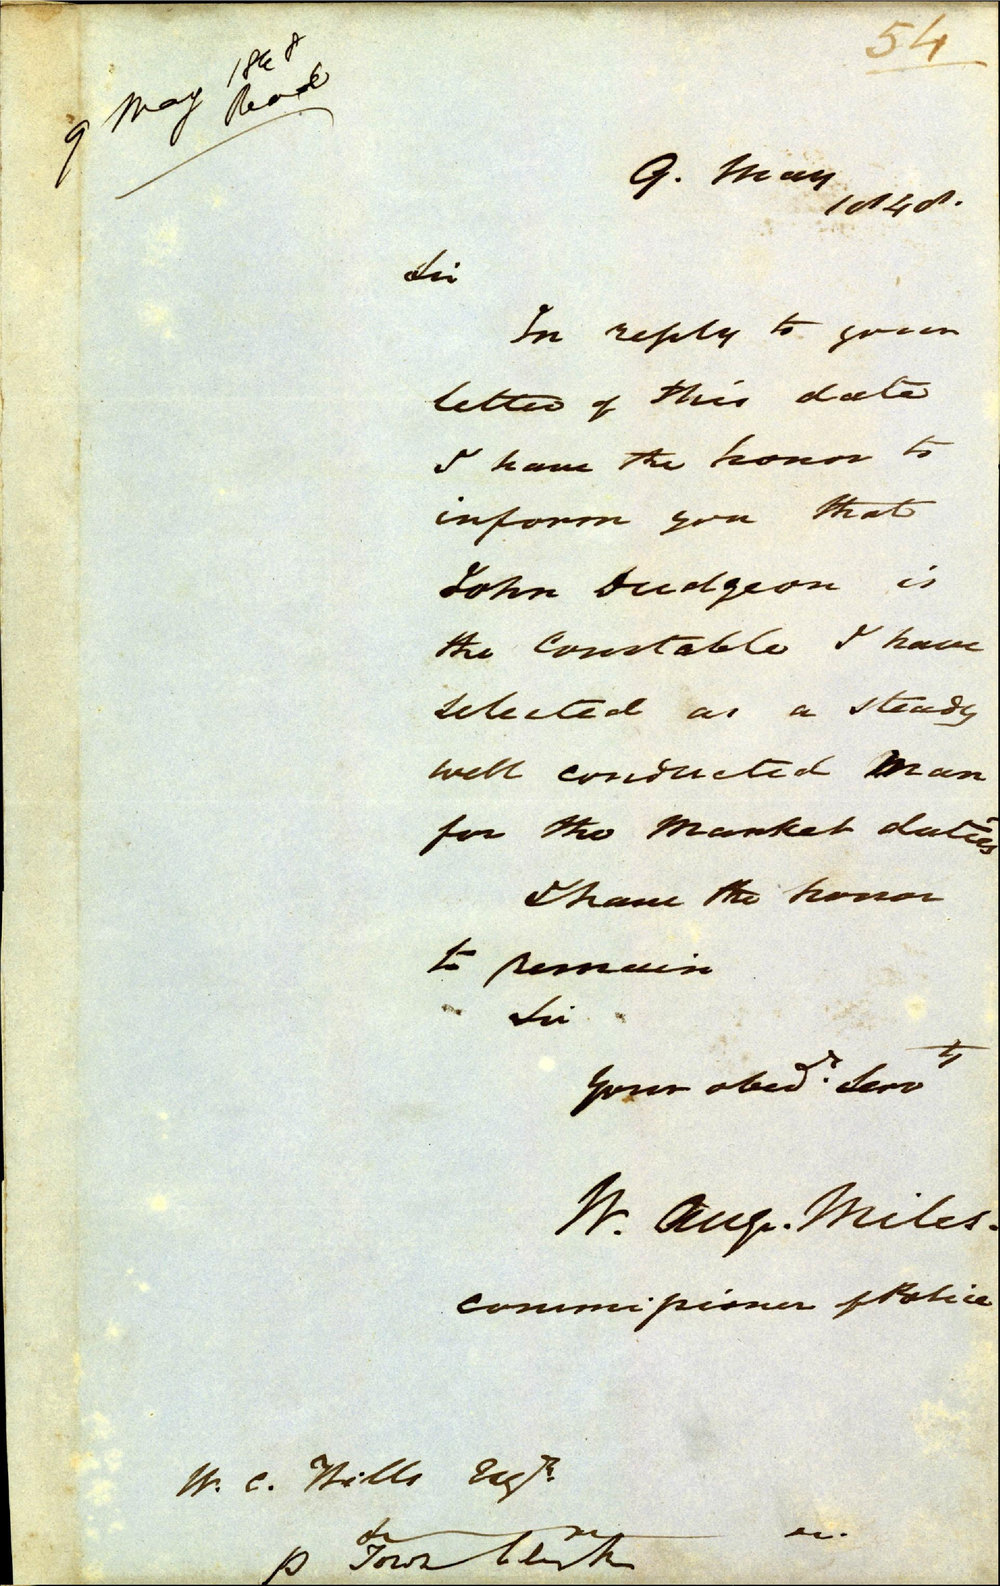 54
9 May 1848
Read
9. May
1848.
Sir
In reply to your
letter of this date
I have the honor to
inform you that
John Dudgeon is
the Constable I have
selected as a steady
well conducted Man
for the Market duties
I have the honor
to remain
Sir
Your obedt. Servt
W. Aug. Miles.
Commissioner of Police
W. C. Wills Esqr.
p Town Clerk